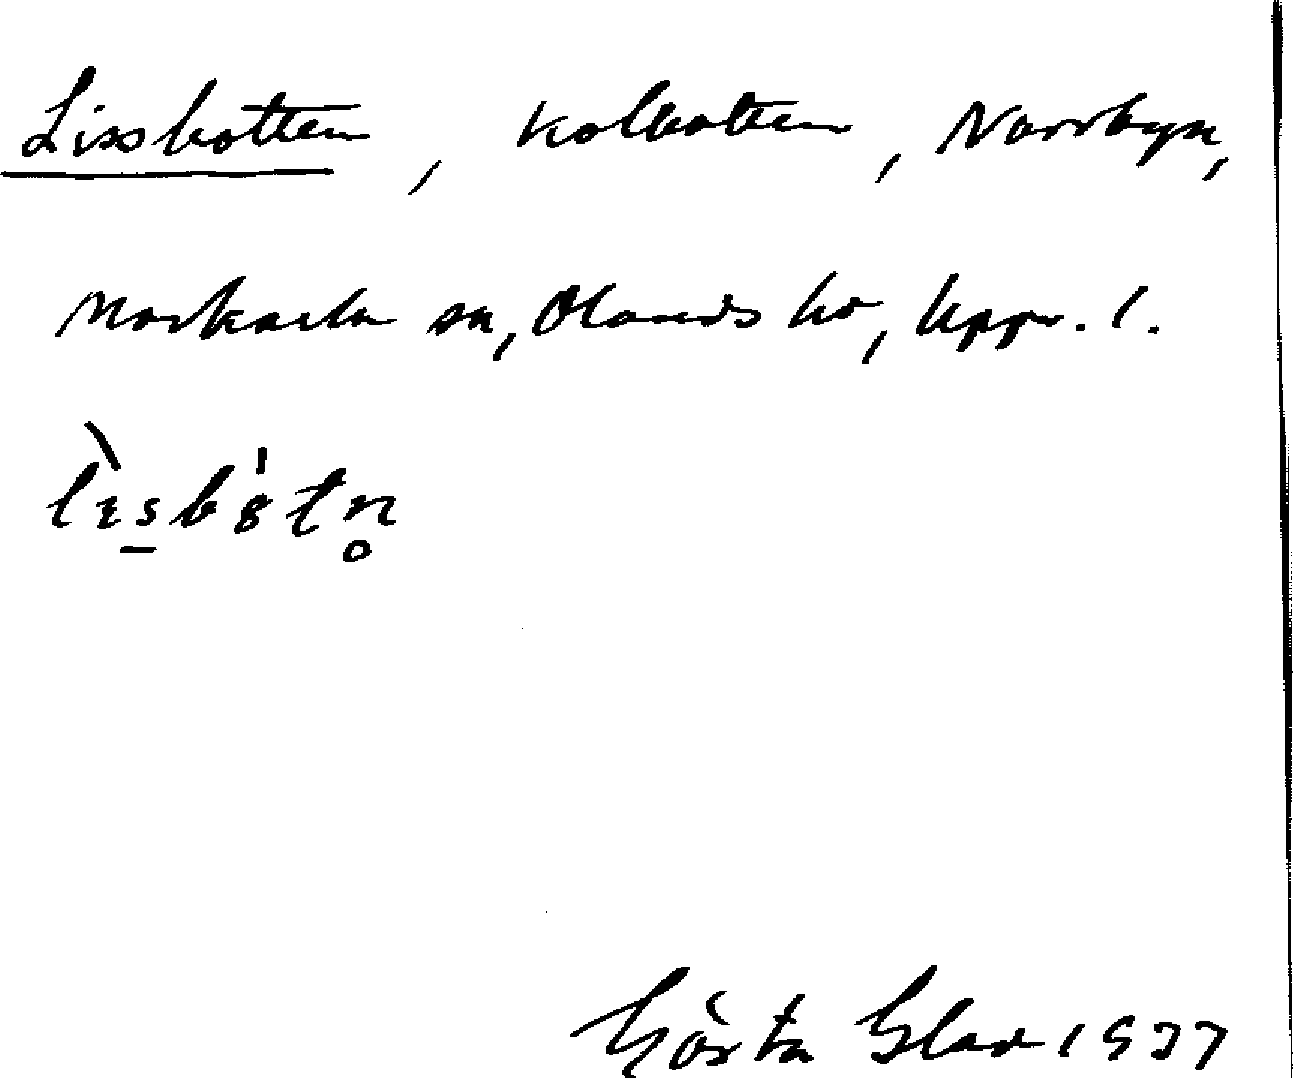 Lissbotten, kolbotten, Norrbyn,
Morkarla sn, Olands hd, Uppl. l.
Gösta Glad 1937